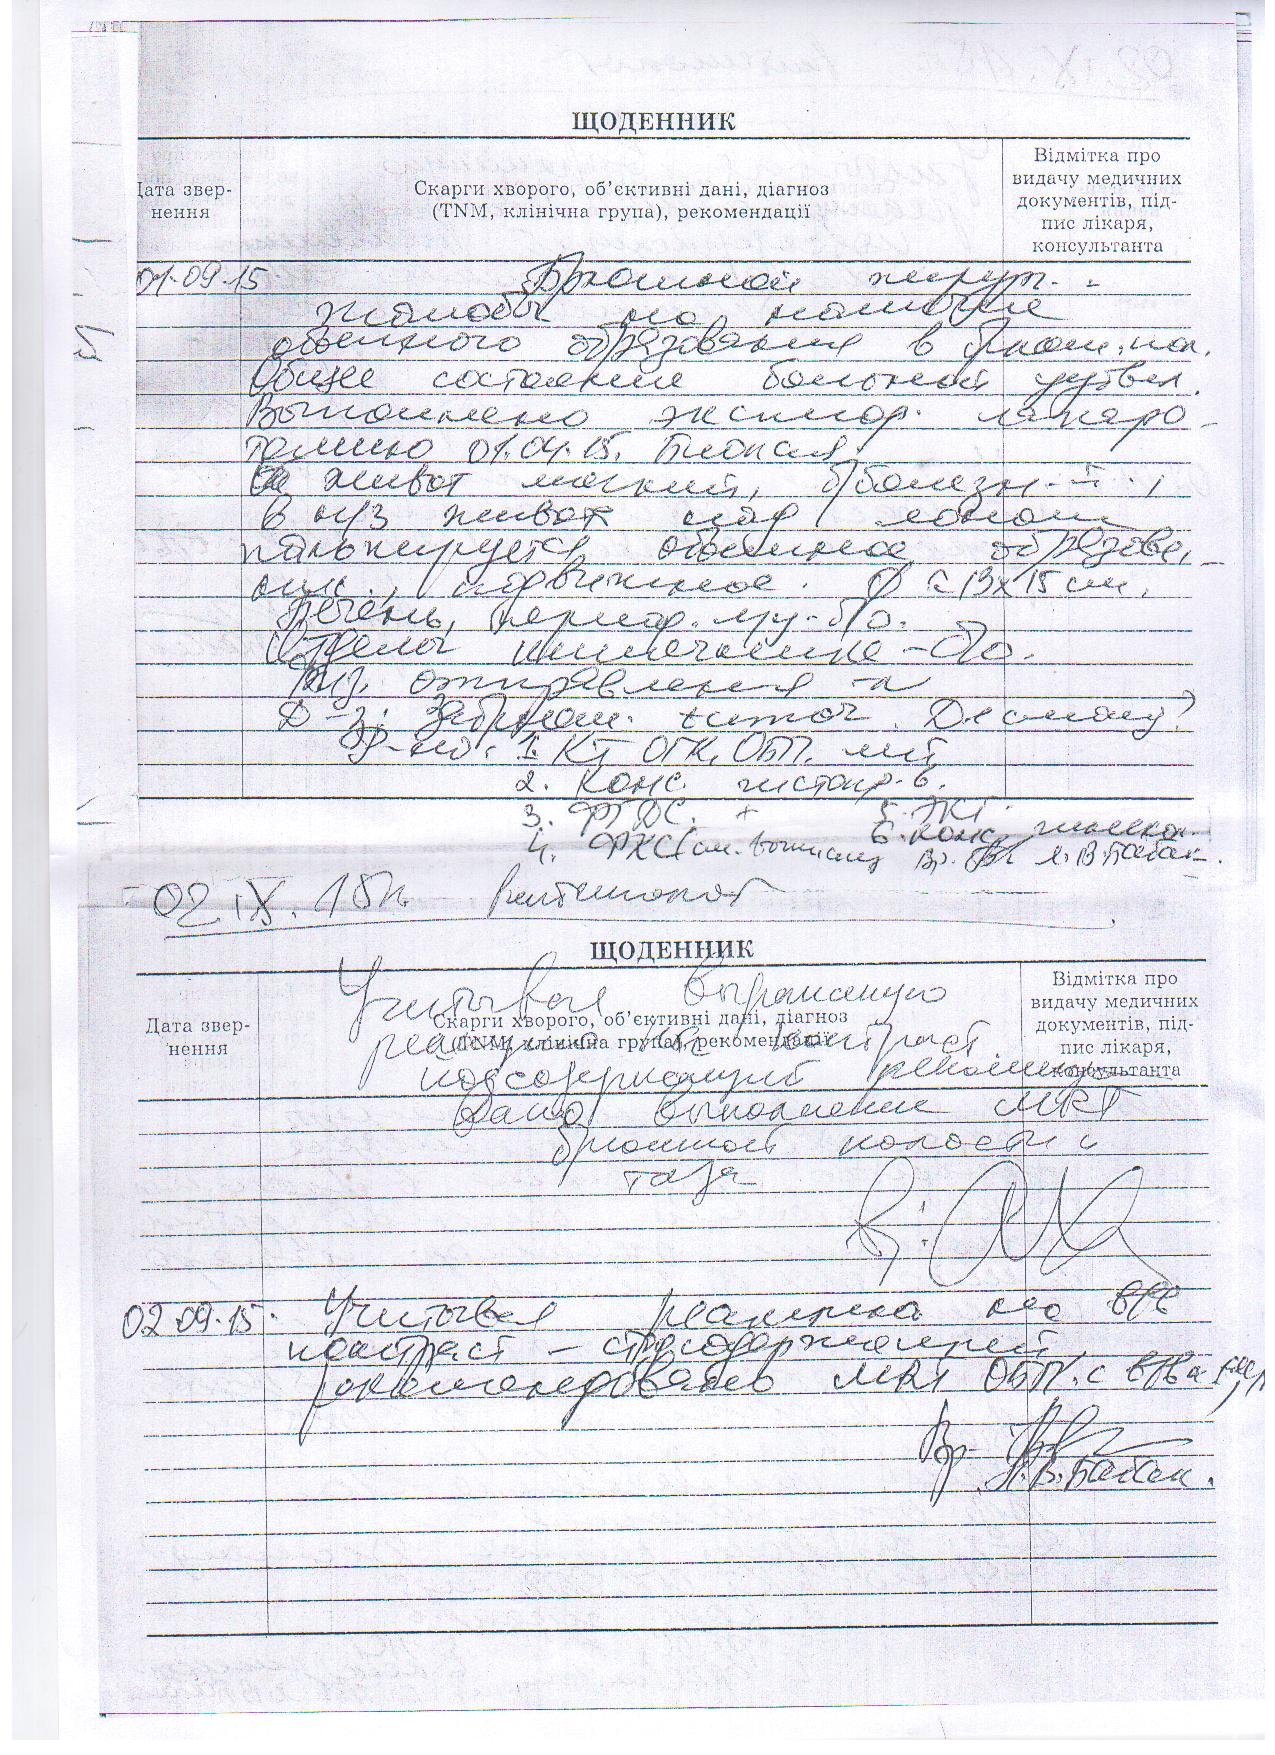 ЩОДЕННИК
Дата звер-
нення
Скарги хворого, об’єктивні дані, діагноз
(TNM, клінічна група), рекомендації
Відмітка про
видачу медичних
документів, під-
пис лікаря,
консультанта
01.09.15 Брюшной хирург.
Жалобы на наличие
объемного образования в брюш. пол.
Общее состояние больной удовл.
Выполнено эксплор. лапаро-
томию 01.04.15. Биопсия
живот мягкий, б/болезн.
В н/з живота над лоном
пальпируется объемное образова-
ние, подвижное. ≈ 13х15 см.
Печень, перифер. л/у - б/о.
Отделы кишечника - б/о.
Физ. отправления - N
Д-з: Забрюш. Десмоид?
Р-но: 1. КТ ОГК, ОБП, МТ
2. Конс. гистопр-в.
3. ФГДС. + 5. ЭКГ.
4. ФКС (см. выписку 6. Конс. гинекол.
Вр. В. Бабак
02.IX.15г. рентгенолог
ЩОДЕННИК
Дата звер-
нення
Скарги хворого, об’єктивні дані, діагноз
(TNM, клінічна група), рекомендації
Відмітка про
видачу медичних
документів, під-
пис лікаря,
консультанта
Учитывая выраженную
реакцию на контраст
йодсодержащий рекомендо-
вано выполнение МРТ
брюшной полости и
таза
02.09.15. Учитывая реакцию на в/в
контраст - йодсодержащий
рекомендовано МРТ ОБП с в/в
Вр.
В. Бабак.